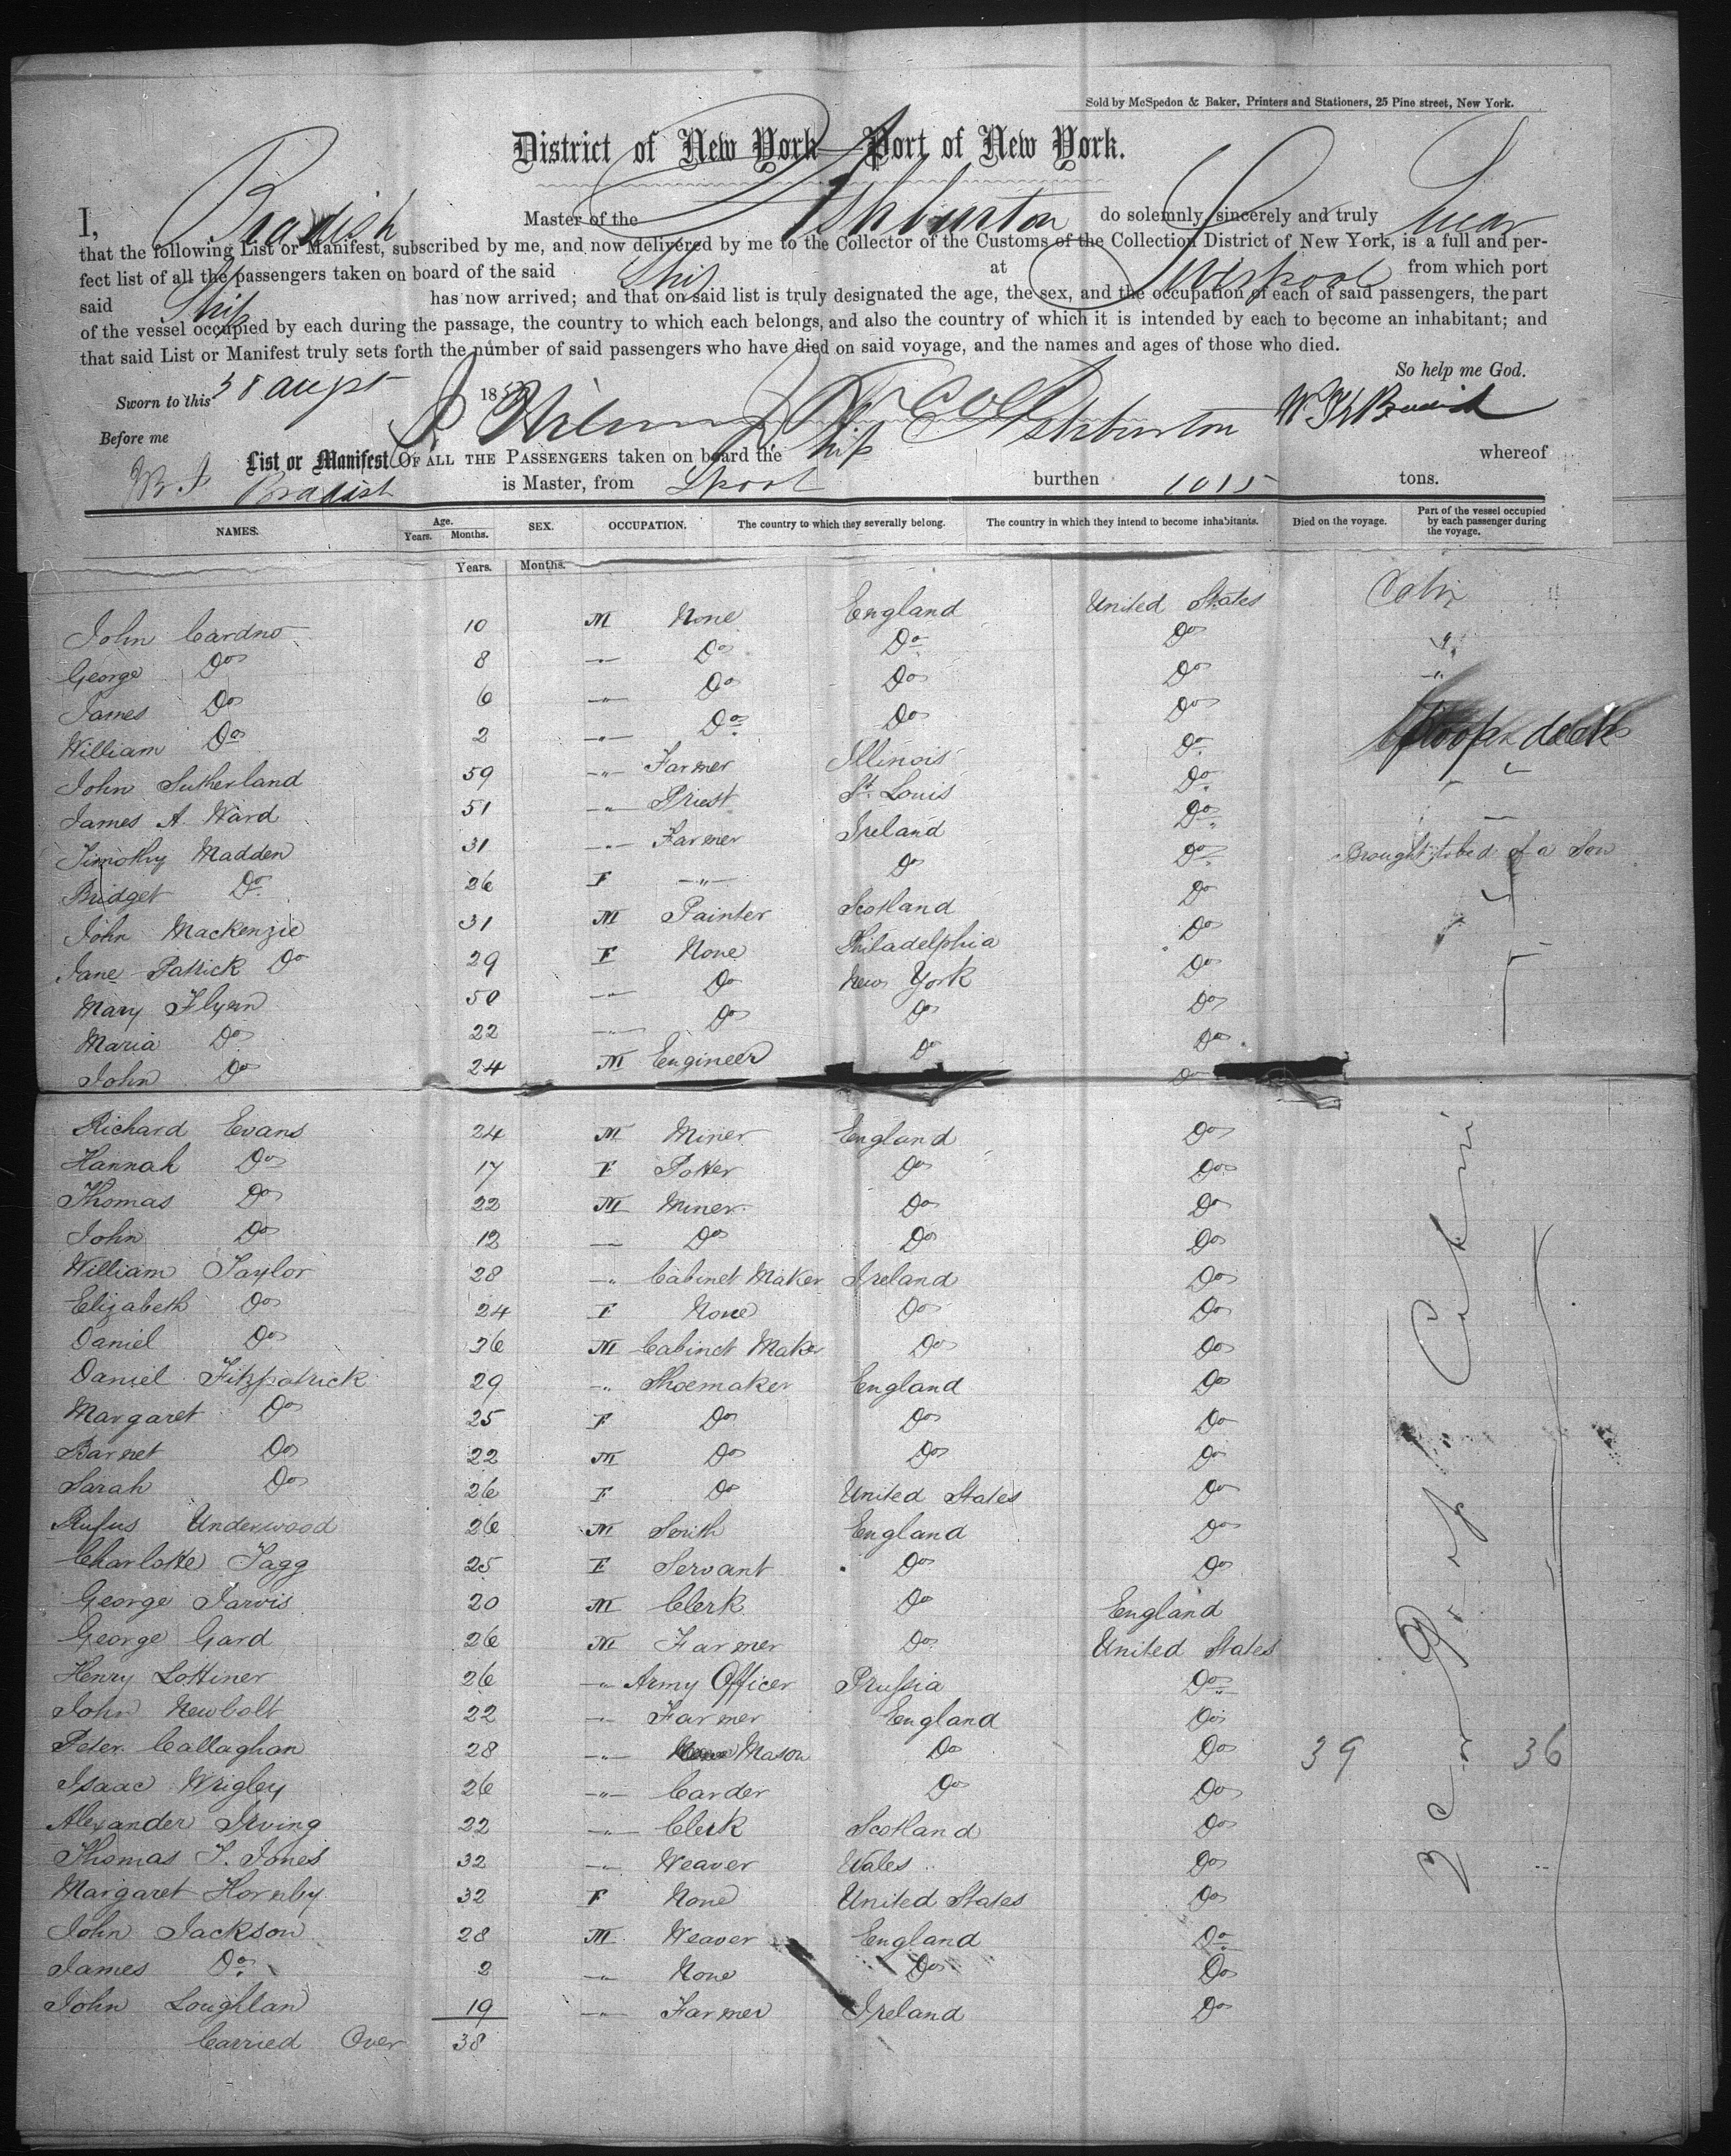 Sold by McSpedon & Baker, Printers and Stationers, 25 Pine street, New York.
District of New York—Port of New York.
I, Bradish Master of the Ashburton do solemnly, sincerely and truly swear
that the following List or Manifest, subscribed by me, and now delivered by me to the Collector of the Customs of the Collection District of New York, is a full and per-
fect list of all the passengers taken on board of the said Ship at Liverpool from which port
said Ship has now arrived; and that on said list is truly designated the age, the sex, and the occupation of each of said passengers, the part
of the vessel occupied by each during the passage, the country to which each belongs, and also the country of which it is intended by each to become an inhabitant; and
that said List or Manifest truly sets forth the number of said passengers who have died on said voyage, and the names and ages of those who died.
So help me God.
Sworn to this augst 185
Before me
List or Manifest OF ALL THE PASSENGERS taken on board the Ship Ashburton whereof
Bradish is Master, from Lpool burthen 1015 tons.
NAMES. Age. Years. Months. SEX. OCCUPATION. The country to which they severally belong. The country in which they intend to become inhabitants. Died on the voyage. Part of the vessel occupied by each passenger during the voyage.
Years. Months.
John Cardno 10 M None England United States Cabin
George Do 8 " Do Do Do "
James Do 6 " Do Do Do "
William Do 2 " Do Do Do
John Sutherland 59 " Farmer Illinois Do deck
James A. Ward 51 " Priest St. Louis Do "
Timothy Madden 31 " Farmer Ireland Do
Bridget Do 26 F " Do Do Brought to bed of a Son
John Mackenzie 31 M Painter Scotland Do
Jane Patrick Do 29 F None Philadelphia Do
Mary Flynn 50 " Do New York Do
Maria Do 22 " Do Do Do
John Do 24 M Engineer Do Do
Richard Evans 24 M Miner England Do
Hannah Do 17 F Potter Do Do
Thomas Do 22 M Miner Do Do
John Do 12 " Do Do Do
William Taylor 28 " Cabinet Maker Ireland Do
Elizabeth Do 24 F None Do Do
Daniel Do 26 M Cabinet Maker Do Do
Daniel Fitzpatrick 29 " Shoemaker England Do
Margaret Do 25 F Do Do Do
Barnet Do 22 M Do Do Do
Sarah Do 26 F Do United States Do
Rufus Underwood 26 M Smith England Do
Charlotte Tagg 25 F Servant Do Do
George Jarvis 20 M Clerk Do England
George Gard 26 M Farmer Do United States
Henry Lottiner 26 " Army Officer Prussia Do
John Newbolt 22 " Farmer England Do
Peter Callaghan 28 " Mason Do Do 39 36
Isaac Wrigley 26 " Carder Do Do
Alexander Irving 22 " Clerk Scotland Do
Thomas T. Jones 32 " Weaver Wales Do
Margaret Hornby 32 F None United States Do
John Jackson 28 M Weaver England Do
James Do 2 " None Do Do
John Loughlan 19 " Farmer Ireland Do
Carried Over 38